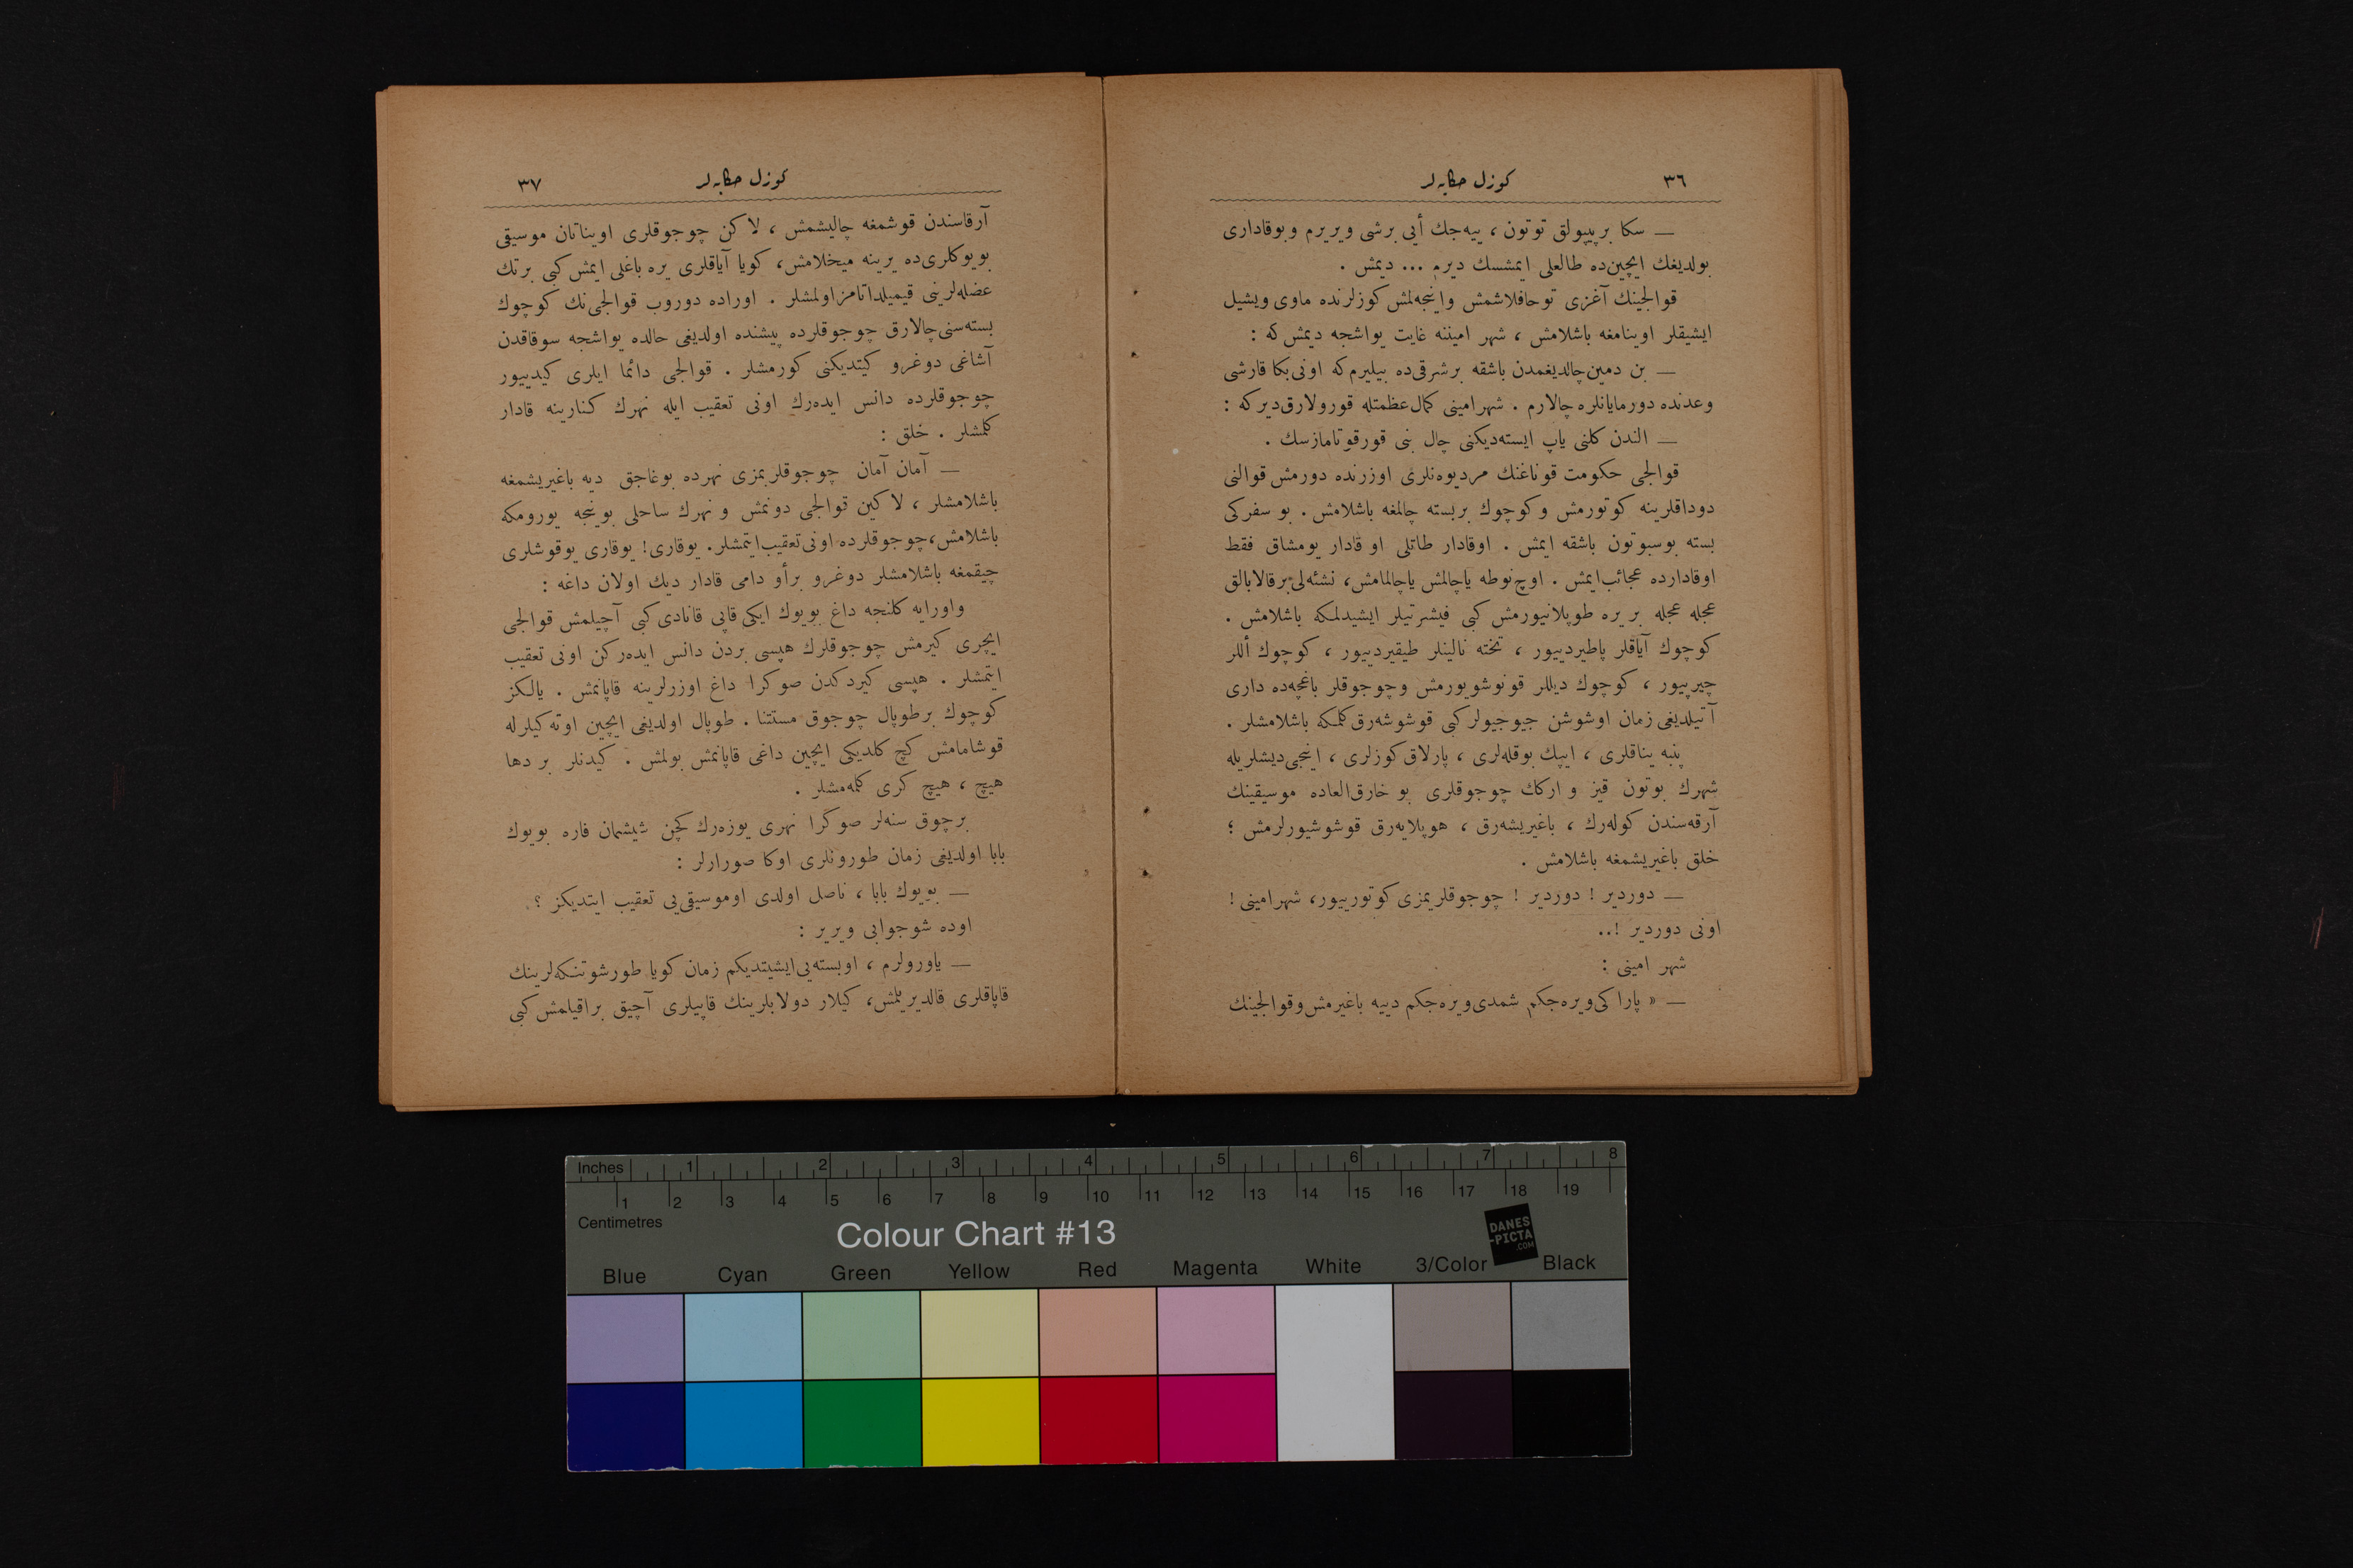 ٣٦
كوزل حكايه لر
ــ سكا بر پيپولق توتون ، ييه جك أيى برشى ويريرم وبوقادارى
بولديغك ايچين ده طالعلى ايمشسك ديرم ... ديمش .
قوالجينك آغزى توحافلاشمش واينجه لمش كوزلرنده ماوى ويشيل
ايشيقلر اوينامغه باشلامش ، شهر اميننه غايت يواشجه ديمش كه :
ــ بن دمين چالديغمدن باشقه بر شرقى ده بيليرم كه اونى بكا قارشى
وعدنده دورمايانلره چالارم . شهر امينى كمال عظمتله قورولارق دير كه :
ــ الندن كلنى ياپ ايسته ديكنى چال بنى قورقوتامازسك .
قوالجى حكومت قوناغنك مرديوه نلرى اوزرنده دورمش قوالنى
دوداقلرينه كوتورمش وكوچوك بر بسته چالمغه باشلامش . بو سفركى
بسته بوسبوتون باشقه ايمش . اوقادار طاتلى او قادار يومشاق فقط
اوقادارده عجائب ايمش . اوچ نوطه ياچالمش ياچالمامش ، نشئه لى بر قالابالق
عجله عجله بر يره طوپلانيورمش كبى فيشرتيلر ايشيدلمكه باشلامش .
كوچوك آياقلر پاطيردييور ، تخته نالينلر طيقيردييور ، كوچوك أللر
چيرپيور ، كوچوك ديللر قونوشويورمش وچوجوقلر باغچه ده دارى
آتيلديغى زمان اوشوشن جيوجيولر كبى قوشوشه رق كلمكه باشلامشلر .
پنبه يناقلرى ، ايپك بوقله لرى ، پارلاق كوزلرى ، اينجى ديشلريله
شهرك بوتون قيز و اركك چوجوقلرى بو خارق العاده موسيقينك
آرقه سندن كوله رك ، باغيريشه رق ، هوپلايه رق قوشوشيورلرمش ؛
خلق باغيريشمغه باشلامش .
ــ دوردير ! دوردير ! چوجوقلريمزى كوتورييور ، شهر امينى !
اونى دوردير !..
شهر امينى :
ــ « پاراكى ويره جكم شمدى ويره جكم دييه باغيرمش وقوالجينك
٣٧
كوزل حكايه لر
آرقاسندن قوشمغه چاليشمش ، لاكن چوجوقلرى اويناتان موسيقى
بويوكلرى ده يرينه ميخلامش ، كويا آياقلرى يره باغلى ايمش كبى برتك
عضله لرينى قيميلداتامز اولمشلر . اوراده دوروب قوالجى نك كوچوك
بسته سنى چالارق چوجوقلرده پيشنده اولديغى حالده يواشجه سوقاقدن
آشاغى دوغرو كيتديكنى كورمشلر . قوالجى دائما ايلرى كيدييور
چوجوقلرده دانس ايده رك اونى تعقيب ايله نهرك كنارينه قادار
كلمشلر . خلق :
ــ آمان آمان چوجوقلريمزى نهرده بوغاجق ديه باغيريشمغه
باشلامشلر ، لاكين قوالجى دونمش و نهرك ساحلى بوينجه يورومكه
باشلامش ، چوجوقلرده اونى تعقيب ايتمشلر . يوقارى ! يوقارى يوقوشلرى
چيقمغه باشلامشلر دوغرو برأو دامى قادار ديك اولان داغه :
واورايه كلنجه داغ بويوك ايكى قاپى قانادى كبى آچيلمش قوالجى
ايچرى كيرمش چوجوقلرك هپسى بردن دانس ايده ركن اونى تعقيب
ايتمشلر . هپسى كيردكدن صوكرا داغ اوزرلرينه قاپانمش . يالكز
كوچوك بر طوپال چوجوق مستثنا . طوپال اولديغى ايچين اوته كيلرله
قوشامامش كچ كلديكى ايچين داغى قاپانمش بولمش . كيدنلر بر دها
هيچ ، هيچ كرى كلمه مشلر .
بر چوق سنه لر صوكرا نهرى يوزه رك كچن شيشمان فاره بويوك
بابا اولديغى زمان طورونلرى اوكا صورارلر :
ــ بويوك بابا ، ناصل اولدى اوموسيقى يى تعقيب ايتديكز ؟
اوده شو جوابى ويرير :
ــ ياورولرم ، اوبسته يى ايشيتديكم زمان كويا طورشوتنكه لرينك
قاپاقلرى قالديريلمش ، كيلار دولابلرينك قاپيلرى آچيق براقيلمش كبى
Inches 1 2 3 4 5 6 7 8
1 2 3 4 5 6 7 8 9 10 11 12 13 14 15 16 17 18 19
Centimetres
Colour Chart #13
DANES
-PICTA
.COM
Blue Cyan Green Yellow Red Magenta White 3/Color Black